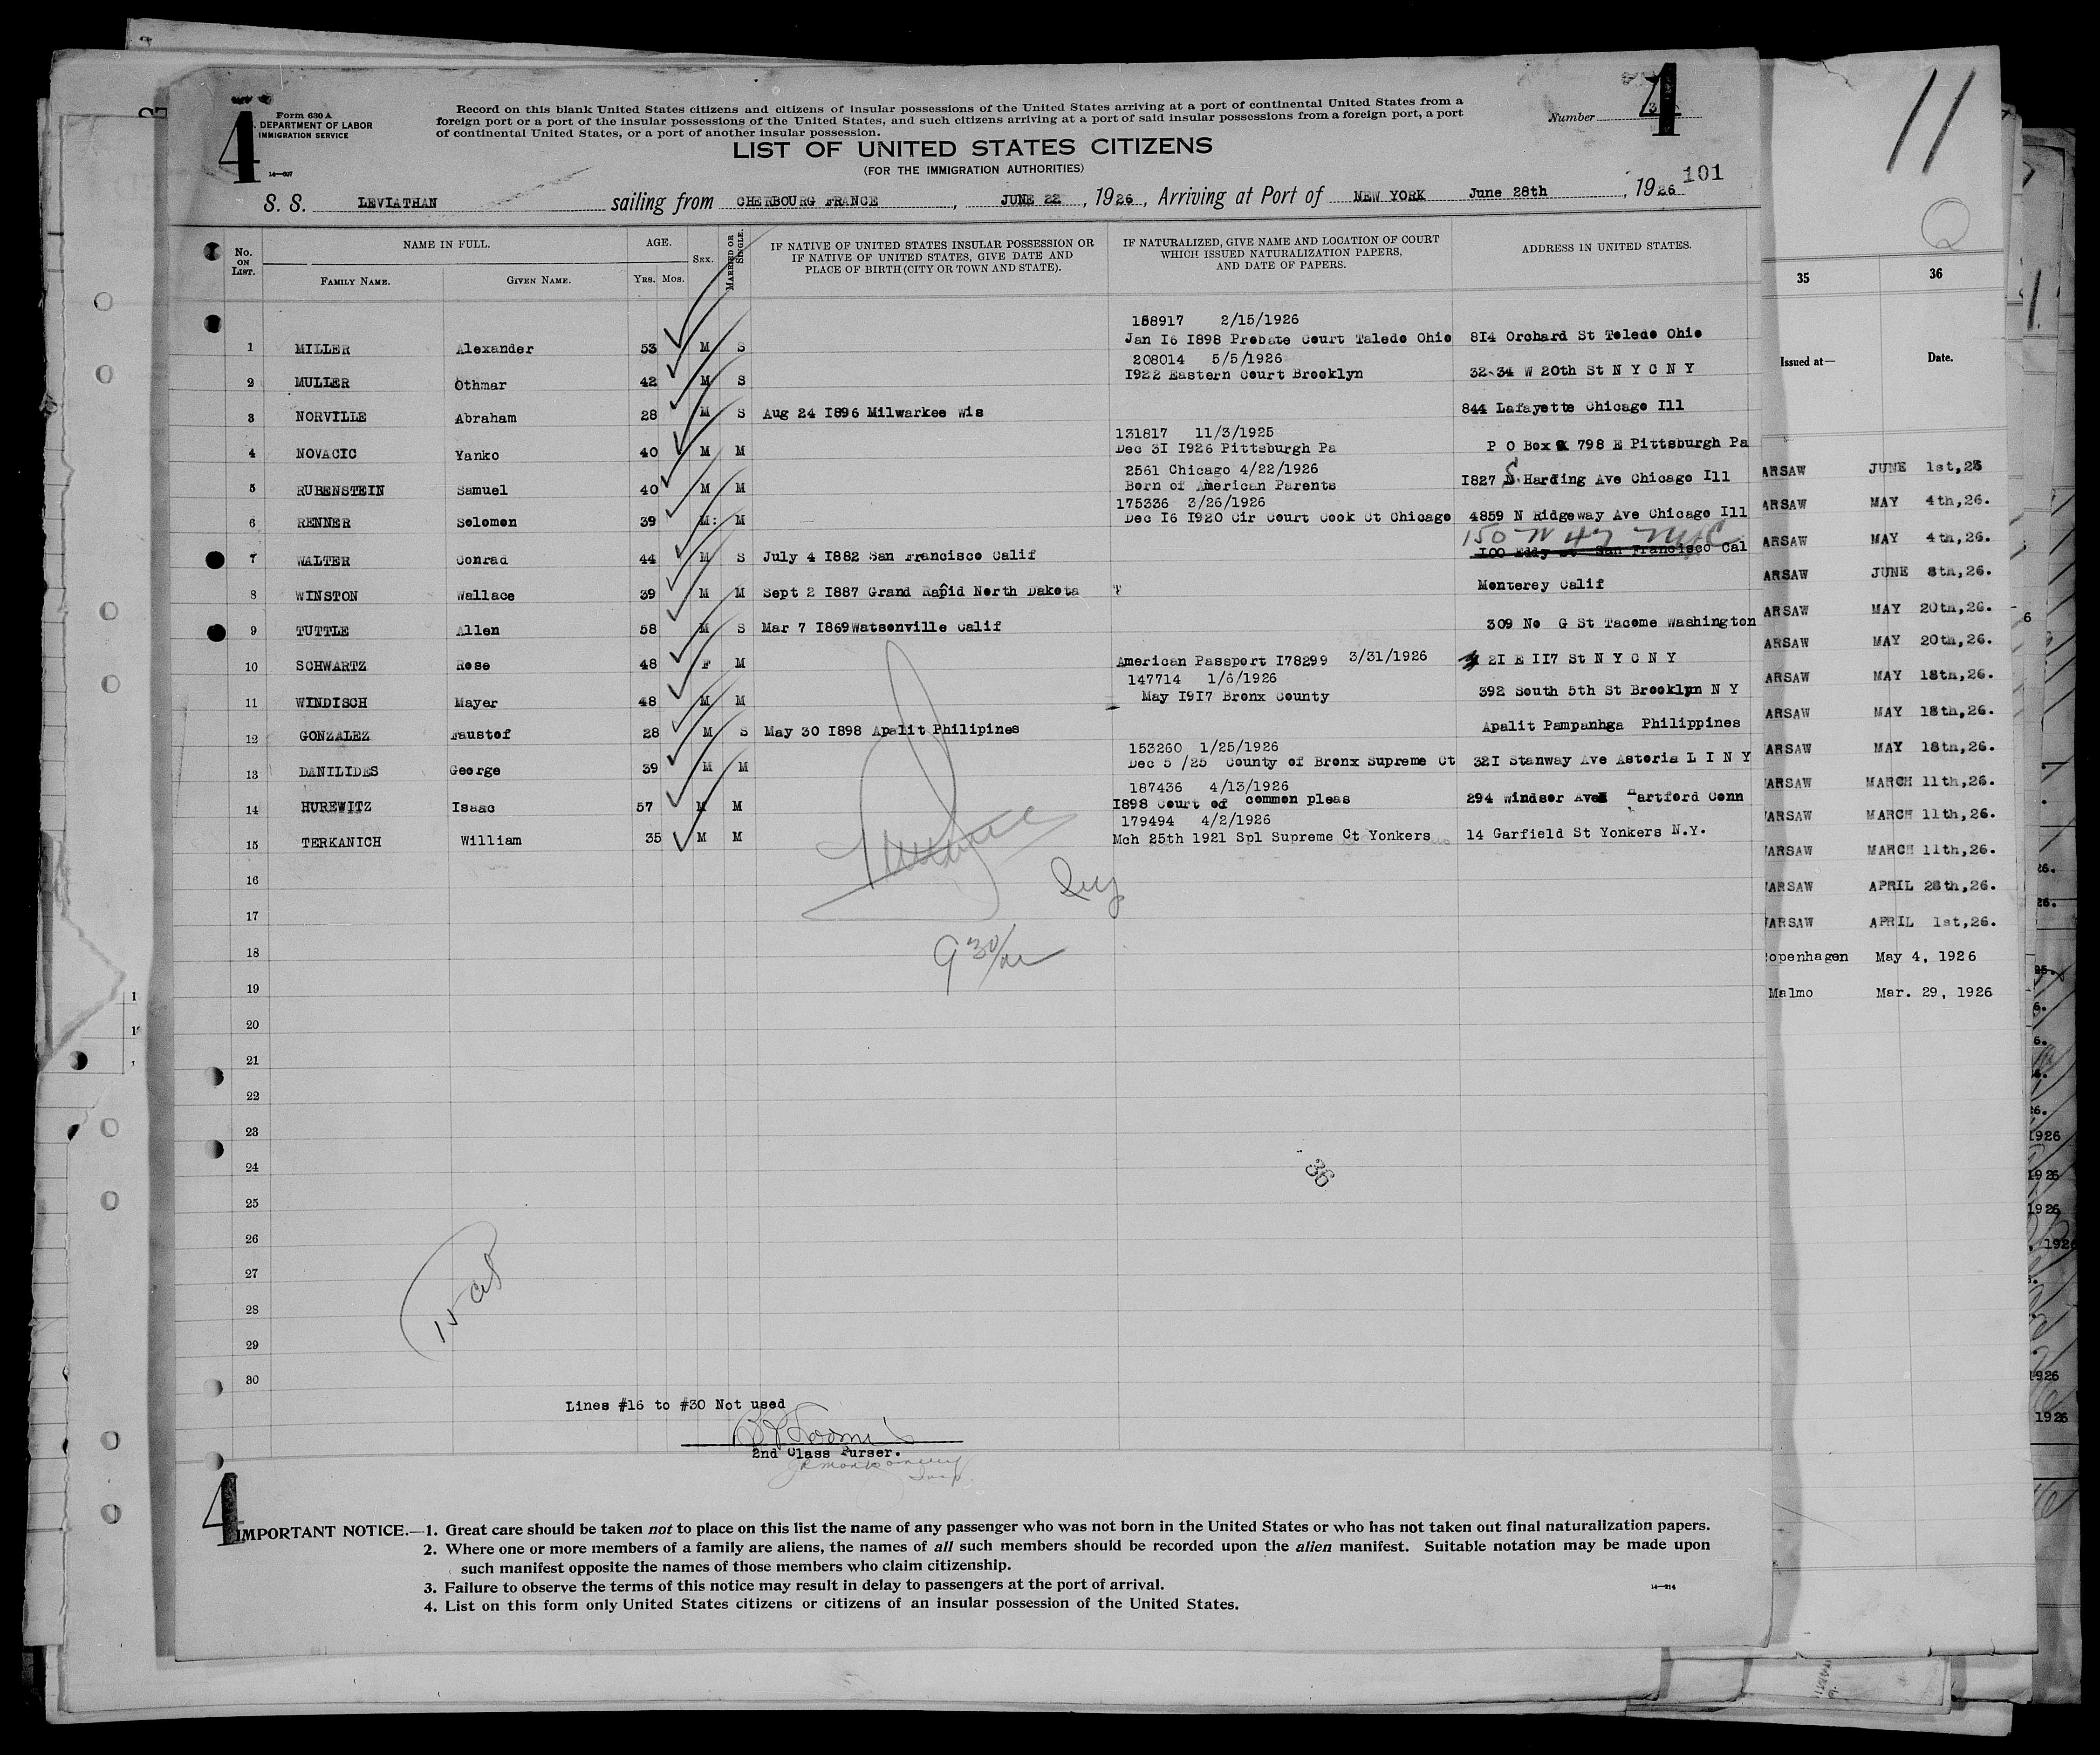 4
Form 630 A
DEPARTMENT OF LABOR
IMMIGRATION SERVICE
Record on this blank United States citizens and citizens of insular possessions of the United States arriving at a port of continental United States from a
foreign port or a port of the insular possessions of the United States, and such citizens arriving at a port of said insular possessions from a foreign port, a port
of continental United States, or a port of another insular possession.
Number 4
LIST OF UNITED STATES CITIZENS
(FOR THE IMMIGRATION AUTHORITIES)
101
S. S. LEVIATHAN sailing from CHERBOURG FRANCE, JUNE 22, 1926, Arriving at Port of NEW YORK June 28th, 1926
No. ON LIST.
NAME IN FULL.
FAMILY NAME.
GIVEN NAME.
AGE.
YRS. MOS.
SEX.
MARRIED OR SINGLE.
IF NATIVE OF UNITED STATES INSULAR POSSESSION OR
IF NATIVE OF UNITED STATES, GIVE DATE AND
PLACE OF BIRTH (CITY OR TOWN AND STATE).
IF NATURALIZED, GIVE NAME AND LOCATION OF COURT
WHICH ISSUED NATURALIZATION PAPERS,
AND DATE OF PAPERS.
ADDRESS IN UNITED STATES.
158917 2/15/1926
1 MILLER Alexander 53 M S Jan I6 I898 Probate Court Taledo Ohio 8I4 Orchard St Toledo Ohio
208014 5/5/1926
2 MULLER Othmar 42 M S I922 Eastern Court Brooklyn 32-34 W 20th St N Y C N Y
3 NORVILLE Abraham 28 M S Aug 24 I896 Milwarkee Wis 844 Lafayette Chicago Ill
131817 11/3/1925
4 NOVACIC Yanko 40 M M Dec 3I I926 Pittsburgh Pa P O Box 798 E Pittsburgh Pa
2561 Chicago 4/22/1926
5 RUBENSTEIN Samuel 40 M M Born of American Parents I827 S. Harding Ave Chicago Ill
175336 3/26/1926
6 RENNER Solomon 39 M: M Dec I6 I920 Cir Court Cook Ct Chicago 4859 N Ridgeway Ave Chicago Ill
150
7 WALTER Conrad 44 M S July 4 I882 San Francisco Calif I00 Eddy St San Francisco Cal
8 WINSTON Wallace 39 M M Sept 2 I887 Grand Rapid North Dakota Monterey Calif
9 TUTTLE Allen 58 M S Mar 7 I869Watsonville Calif 309 No G St Tacome Washington
10 SCHWARTZ Rose 48 F M American Passport I78299 3/31/1926 2I E II7 St N Y C N Y
147714 1/6/1926
11 WINDISCH Mayer 48 M M May I9I7 Bronx County 392 South 5th St Brooklyn N Y
12 GONZALEZ Faustof 28 M S May 30 I898 Apalit Philipines Apalit Pampanhga Philippines
153260 1/25/1926
13 DANILIDES George 39 M M Dec 5 /25 County of Bronx Supreme Ct 32I Stanway Ave Astoria L I N Y
187436 4/13/1926
14 HUREWITZ Isaac 57 M M I898 Court of common pleas 294 Windsor Ave Hartford Conn
179494 4/2/1926
15 TERKANICH William 35 M M Mch 25th 1921 Spl Supreme Ct Yonkers 14 Garfield St Yonkers N.Y.
16
17
18
19
20
21
22
23
24
25
26
27
28
29
30
9 30/
36
Lines #16 to #30 Not used
2nd Class Purser.
4
IMPORTANT NOTICE.—1. Great care should be taken not to place on this list the name of any passenger who was not born in the United States or who has not taken out final naturalization papers.
2. Where one or more members of a family are aliens, the names of all such members should be recorded upon the alien manifest. Suitable notation may be made upon
such manifest opposite the names of those members who claim citizenship.
3. Failure to observe the terms of this notice may result in delay to passengers at the port of arrival.
4. List on this form only United States citizens or citizens of an insular possession of the United States.
14—914
11
35 36
Issued at— Date.
ARSAW JUNE 1st,26
ARSAW MAY 4th,26.
ARSAW MAY 4th,26.
ARSAW JUNE 8th,26.
ARSAW MAY 20th,26.
ARSAW MAY 20th,26.
ARSAW MAY 18th,26.
ARSAW MAY 18th,26.
ARSAW MAY 18th,26.
ARSAW MARCH 11th,26.
ARSAW MARCH 11th,26.
ARSAW MARCH 11th,26.
ARSAW APRIL 28th,26.
ARSAW APRIL 1st,26.
openhagen May 4, 1926
Malmo Mar. 29, 1926